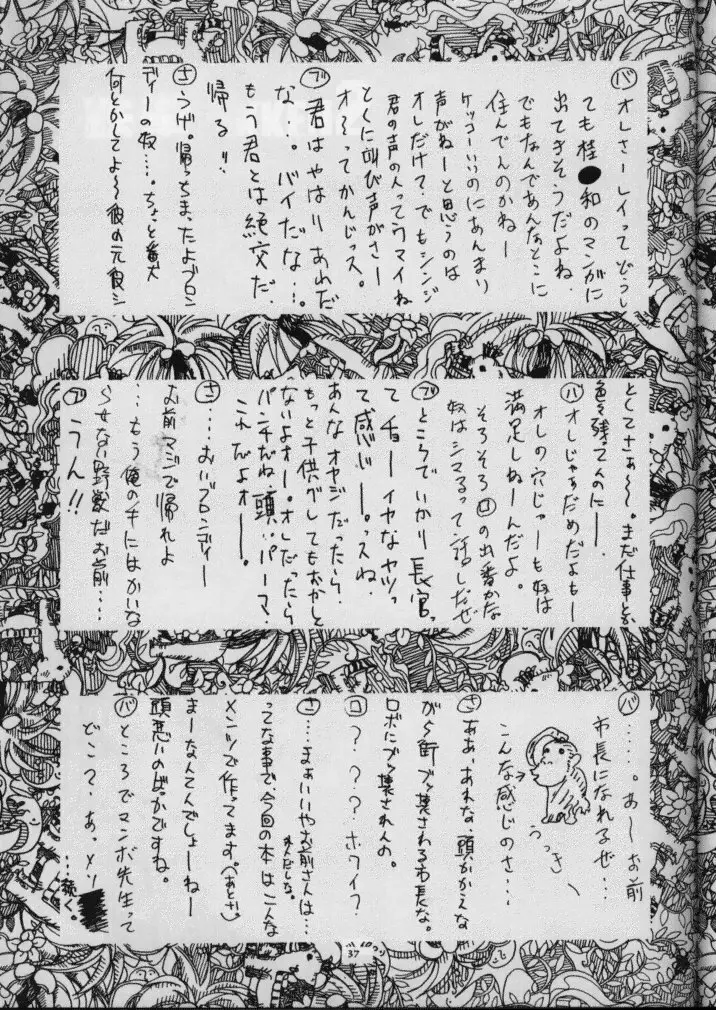 バ オレさーレイってどうし
ても桂●和のマンガに
出てきそうだよね。
でもなんであんなとこに
住んでんのかねー
ケッコーいいのにあんまり
声がねーと思うのは
オレだけ?でもシンジ
君の声の人ってウマイね
とくに叫び声がさー
オーってかんじっス。
ブ 君はやはりあれだ
な…。バイだな…。
もう君とは絶交だ。
帰る!!
さ うげ。帰っちまったよブロン
ディーの奴……。ちょと番犬
何とかしてよ〜彼の元食シ
としてさぁ〜。まだ仕事とか
色々残ってんのにー。
バ オレじゃあだめだよもー
オレの穴じゃーも奴は
満足しねーんだよ。
そろそろロの出番かな
奴はシマるって話しだぜ
ブ ところでいかり長官っ
てチョーイヤなヤツっ
て感じー。っスね。
あんなオヤジだったら
もっと子供グレてもおかしく
ないよオー。オレだったら
パンチだね。頭。パーマ。
これだよオー。
さ ……おいブロンディー
お前マジで帰れよ
…もう俺の手にはおえな
い野獣だお前……
ブ うん!!
バ ……。あーお前
市長になれるぜ…
こんな感じのさ…
うっきー
さ ああ、あれな、頭かかえな
がら街ブッ壊される市長な。
ロボにブッ壊されんの。
ロ ????ホワイ?
さ …まぁいいやお前さんは…
ってな事で今回の本はこんな
メンツで作ってます。(あとがき)
まーなんてんでしょーねー
頭悪いのばっかですね。
バ ところでマンボ先生って
どこ?あ、メリ
…続く。
37